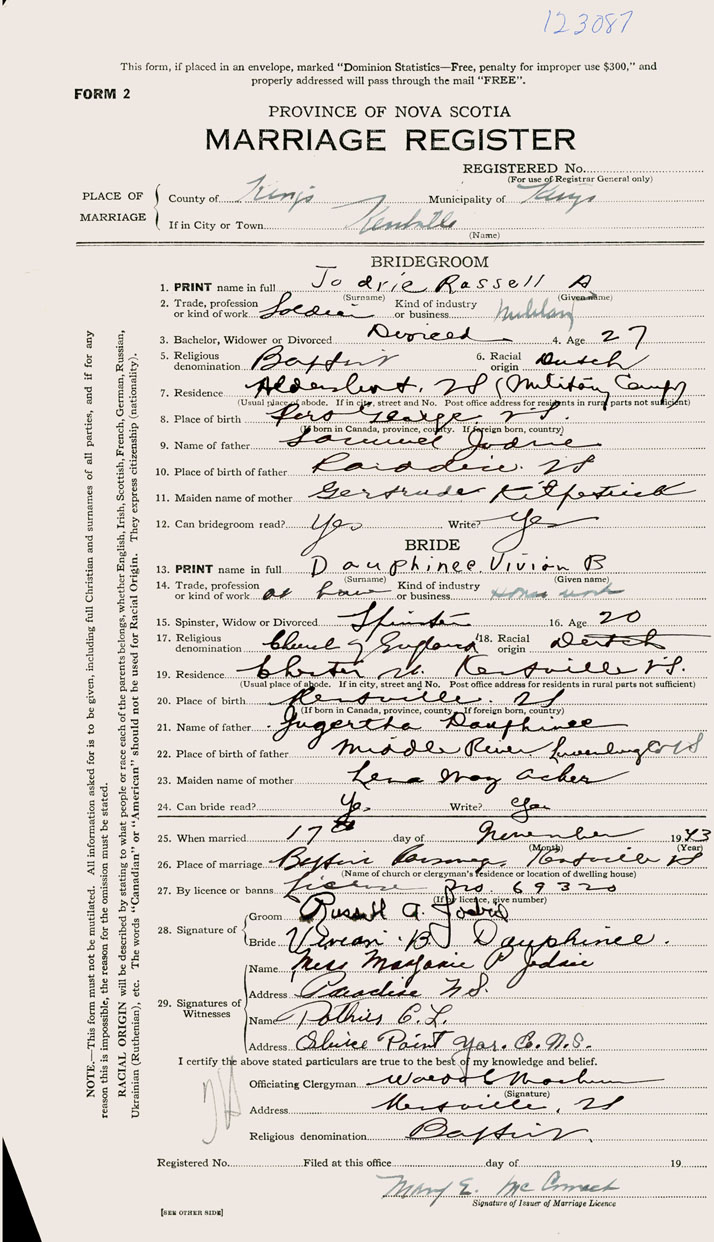 123087
This form, if placed in an envelope, marked "Dominion Statistics—Free, penalty for improper use $300," and
properly addressed will pass through the mail "FREE".
FORM 2
PROVINCE OF NOVA SCOTIA
MARRIAGE REGISTER
REGISTERED No.
(For use of Registrar General only)
PLACE OF MARRIAGE
County of Kings Municipality of Kings
If in City or Town Kentville
(Name)
BRIDEGROOM
1. PRINT name in full Jodrie Rassell A
(Surname) (Given name)
2. Trade, profession or kind of work Soldier Kind of industry or business Military
3. Bachelor, Widower or Divorced Divorced 4. Age 27
5. Religious denomination Baptist 6. Racial origin Dutch
7. Residence Aldershot, NS (Military Camp)
(Usual place of abode. If in city, street and No. Post office address for residents in rural parts not sufficient)
8. Place of birth George NS.
(If born in Canada, province, county. If foreign born, country)
9. Name of father Samuel Jodrie
10. Place of birth of father Paradise. NS
11. Maiden name of mother Gertrude Kilpatrick
12. Can bridegroom read? Yes Write? Yes
BRIDE
13. PRINT name in full Dauphinee Vivian B
(Surname) (Given name)
14. Trade, profession or kind of work at home Kind of industry or business House work
15. Spinster, Widow or Divorced Spinster 16. Age 20
17. Religious denomination Church of England 18. Racial origin Dutch
19. Residence Chester Kentville NS.
(Usual place of abode. If in city, street and No. Post office address for residents in rural parts not sufficient)
20. Place of birth Kentville. NS
(If born in Canada, province, county. If foreign born, country)
21. Name of father Jugertha Dauphinee
22. Place of birth of father Middle River Lunenburg Co NS
23. Maiden name of mother Lena May Acker
24. Can bride read? Yes Write? Yes
25. When married 17th day of November 1943
(Month) (Year)
26. Place of marriage Baptist Parsonage Kentville NS
(Name of church or clergyman's residence or location of dwelling house)
27. By licence or banns License No. 69320
(If by licence, give number)
28. Signature of
Groom Russell A. Jodrie
Bride Vivian B Dauphinee.
29. Signatures of Witnesses
Name Miss Marjorie P Jodrie
Address Paradise N.S.
Name C. L.
Address Sluice Point Yar. C. N.S.
I certify the above stated particulars are true to the best of my knowledge and belief.
Officiating Clergyman
(Signature)
Address Kentville, NS
Religious denomination Baptist.
Registered No. Filed at this office day of 19
Mary E. McCormack
Signature of Issuer of Marriage Licence
[SEE OTHER SIDE]
NOTE.—This form must not be mutilated. All information asked for is to be given, including full Christian and surnames of all parties, and if for any
reason this is impossible, the reason for the omission must be stated.
RACIAL ORIGIN will be described by stating to what people or race each of the parents belongs, whether English, Irish, Scottish, French, German, Russian,
Ukrainian (Ruthenian), etc. The words "Canadian" or "American" should not be used for Racial Origin. They express citizenship (nationality).